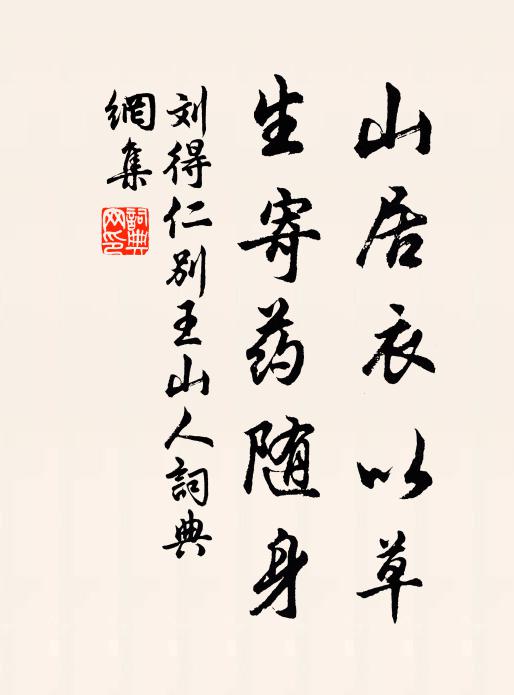 山居衣以草
生寄药随身
刘得仁别王山人詞典
網集
詞典
网印